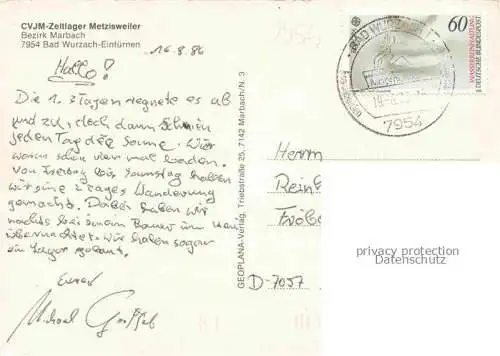 CVJM-Zeltlager Metzisweiler
Bezirk Marbach
7954 Bad Wurzach-Eintürnen
16.8.86
Hallo!
Die 1. 3 Tagen regnete es ab
und zu, doch dann schien
jeden Tag die Sonne. Wir
waren schon vier mal baden.
Von Freitag bis Samstag haben
wir eine 2 tages Wanderung
gemacht. Dabei haben wir
nachts bei einem Bauer im Heu
übernachtet. Wir haben sogar
ein Lager gebaut.
Euer
Michael
GEOPLANA-Verlag, Triebstraße 25, 7142 Marbach/N. 3
7954
60
WASSERREINHALTUNG
DEUTSCHE BUNDESPOST
BAD WURZACH 1
7954
Herrn
Rein
Fröbe
D-7057
privacy protection
Datenschutz